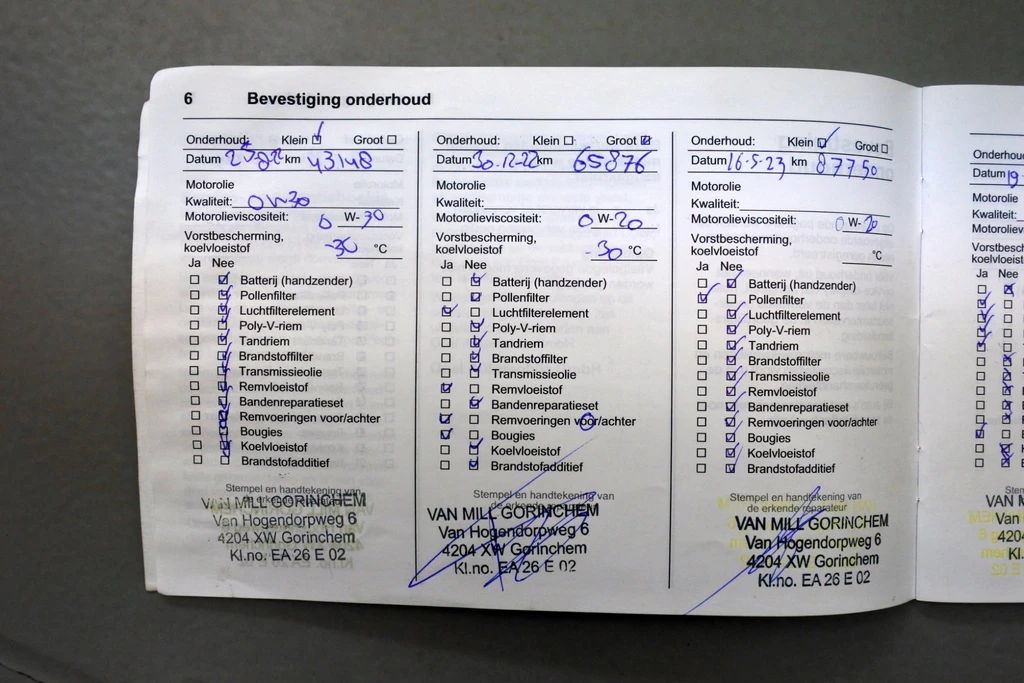 6 Bevestiging onderhoud
Onderhoud: Klein Groot
Datum km 43148
Motorolie
Kwaliteit: 0W30
Motorolieviscositeit: 0 W-30
Vorstbescherming,
koelvloeistof -30 °C
Ja Nee
Batterij (handzender)
Pollenfilter
Luchtfilterelement
Poly-V-riem
Tandriem
Brandstoffilter
Transmissieolie
Remvloeistof
Bandenreparatieset
Remvoeringen voor/achter
Bougies
Koelvloeistof
Brandstofadditief
Stempel en handtekening van
de erkende reparateur
VAN MILL GORINCHEM
Van Hogendorpweg 6
4204 XW Gorinchem
Kl.no. EA 26 E 02
Onderhoud: Klein Groot
Datum 30-12-22 km 65876
Motorolie
Kwaliteit:
Motorolieviscositeit: 0 W-20
Vorstbescherming,
koelvloeistof -30 °C
Ja Nee
Batterij (handzender)
Pollenfilter
Luchtfilterelement
Poly-V-riem
Tandriem
Brandstoffilter
Transmissieolie
Remvloeistof
Bandenreparatieset
Remvoeringen voor/achter
Bougies
Koelvloeistof
Brandstofadditief
Stempel en handtekening van
de erkende reparateur
VAN MILL GORINCHEM
Van Hogendorpweg 6
4204 XW Gorinchem
Kl.no. EA 26 E 02
Onderhoud: Klein Groot
Datum 16-5-23 km 87750
Motorolie
Kwaliteit:
Motorolieviscositeit: 0 W-20
Vorstbescherming,
koelvloeistof °C
Ja Nee
Batterij (handzender)
Pollenfilter
Luchtfilterelement
Poly-V-riem
Tandriem
Brandstoffilter
Transmissieolie
Remvloeistof
Bandenreparatieset
Remvoeringen voor/achter
Bougies
Koelvloeistof
Brandstofadditief
Stempel en handtekening van
de erkende reparateur
VAN MILL GORINCHEM
Van Hogendorpweg 6
4204 XW Gorinchem
Kl.no. EA 26 E 02
Onderhoud
Datum 19
Motorolie
Kwaliteit:
Motoroliev
Vorstbesch
koelvloeist
Ja Nee
VAN M
Van
4204
Kl.